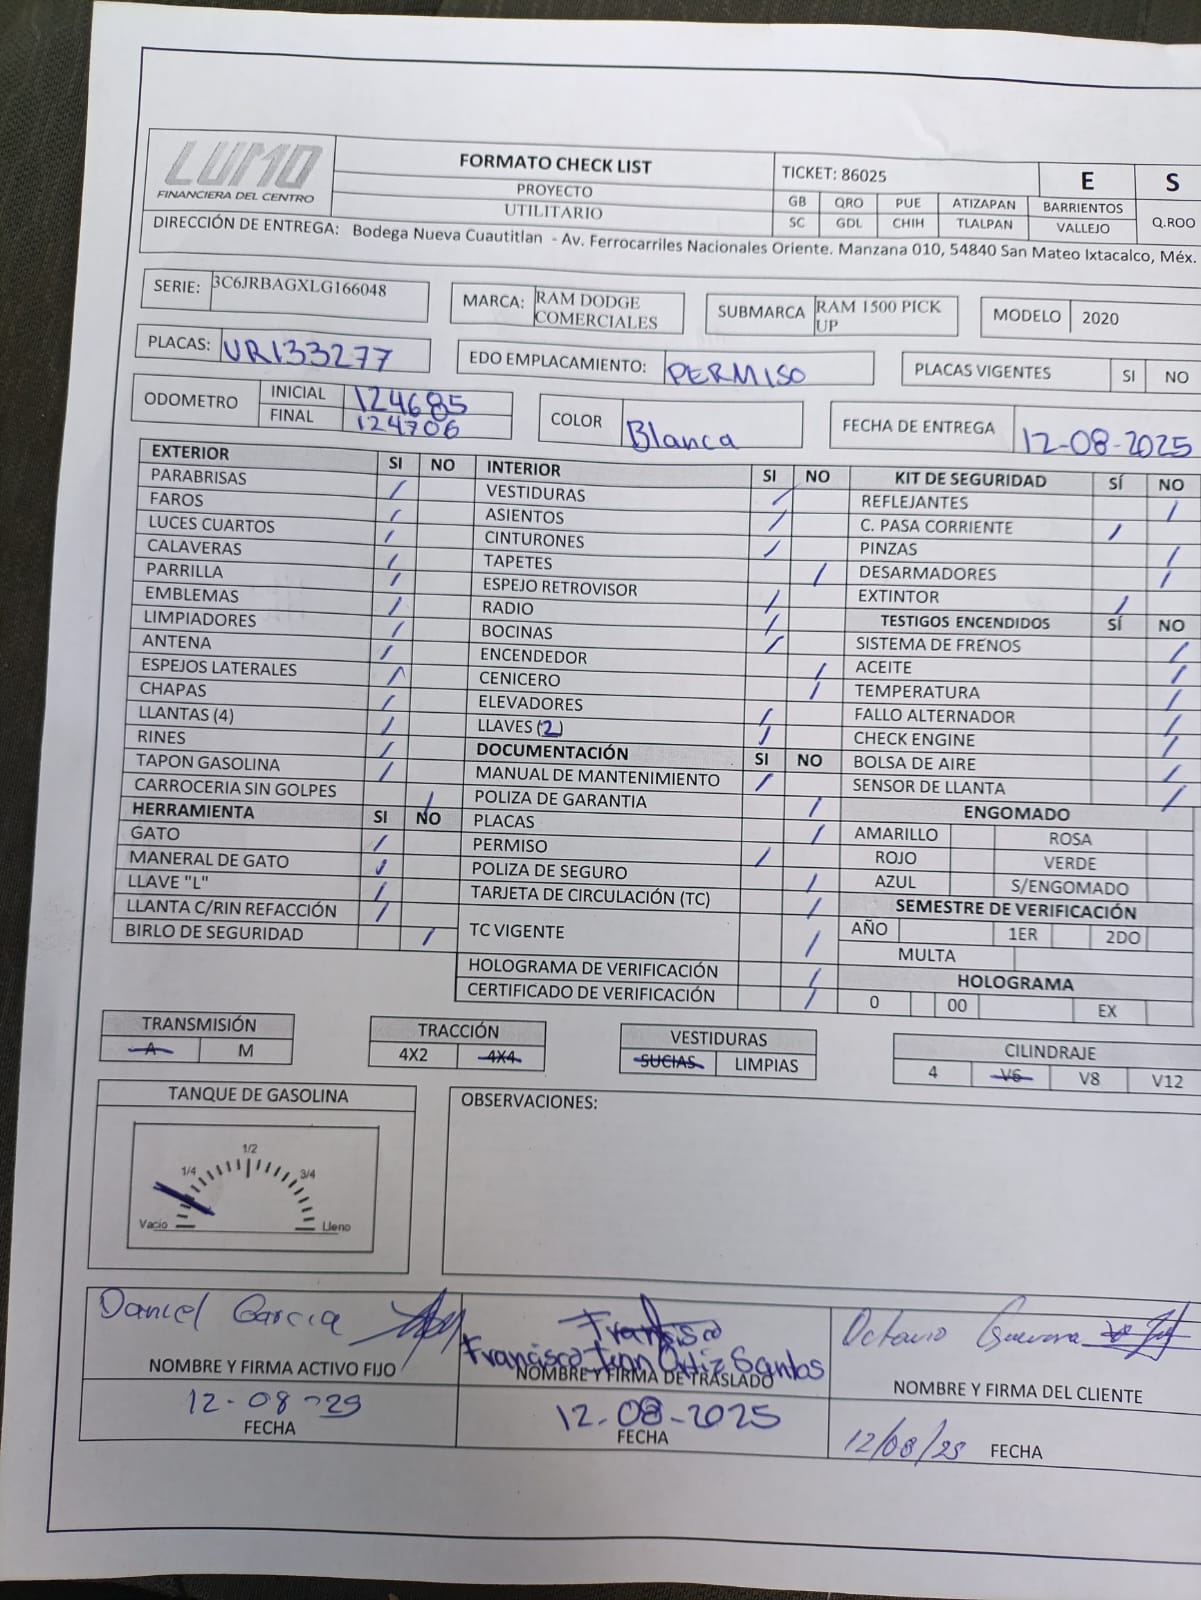 LUMO
FINANCIERA DEL CENTRO
FORMATO CHECK LIST
PROYECTO
UTILITARIO
TICKET: 86025
E S
GB QRO PUE ATIZAPAN BARRIENTOS
SC GDL CHIH TLALPAN VALLEJO Q.ROO
DIRECCIÓN DE ENTREGA: Bodega Nueva Cuautitlan - Av. Ferrocarriles Nacionales Oriente. Manzana 010, 54840 San Mateo Ixtacalco, Méx.
SERIE: 3C6JRBAGXLG166048
MARCA: RAM DODGE COMERCIALES
SUBMARCA RAM 1500 PICK UP
MODELO 2020
PLACAS: VR133277
EDO EMPLACAMIENTO: PERMISO
PLACAS VIGENTES SI NO
ODOMETRO INICIAL 124685
FINAL 124706
COLOR Blanca
FECHA DE ENTREGA 12-08-2025
EXTERIOR SI NO
PARABRISAS /
FAROS /
LUCES CUARTOS /
CALAVERAS /
PARRILLA /
EMBLEMAS /
LIMPIADORES /
ANTENA /
ESPEJOS LATERALES /
CHAPAS /
LLANTAS (4) /
RINES /
TAPON GASOLINA /
CARROCERIA SIN GOLPES /
HERRAMIENTA SI NO
GATO /
MANERAL DE GATO /
LLAVE "L" /
LLANTA C/RIN REFACCIÓN /
BIRLO DE SEGURIDAD /
INTERIOR SI NO
VESTIDURAS /
ASIENTOS /
CINTURONES /
TAPETES /
ESPEJO RETROVISOR /
RADIO /
BOCINAS /
ENCENDEDOR /
CENICERO /
ELEVADORES /
LLAVES (2) /
DOCUMENTACIÓN SI NO
MANUAL DE MANTENIMIENTO /
POLIZA DE GARANTIA /
PLACAS /
PERMISO /
POLIZA DE SEGURO /
TARJETA DE CIRCULACIÓN (TC) /
TC VIGENTE /
HOLOGRAMA DE VERIFICACIÓN /
CERTIFICADO DE VERIFICACIÓN /
KIT DE SEGURIDAD SÍ NO
REFLEJANTES /
C. PASA CORRIENTE /
PINZAS /
DESARMADORES /
EXTINTOR /
TESTIGOS ENCENDIDOS SÍ NO
SISTEMA DE FRENOS /
ACEITE /
TEMPERATURA /
FALLO ALTERNADOR /
CHECK ENGINE /
BOLSA DE AIRE /
SENSOR DE LLANTA /
ENGOMADO
AMARILLO ROSA
ROJO VERDE
AZUL S/ENGOMADO
SEMESTRE DE VERIFICACIÓN
AÑO 1ER 2DO
MULTA
HOLOGRAMA
0 00 EX
TRANSMISIÓN
A M
TRACCIÓN
4X2 4X4
VESTIDURAS
SUCIAS LIMPIAS
CILINDRAJE
4 V6 V8 V12
TANQUE DE GASOLINA
1/2
1/4 3/4
Vacio Lleno
OBSERVACIONES:
Daniel Garcia
NOMBRE Y FIRMA ACTIVO FIJO
12-08-25
FECHA
Francisco
Francisco Juan Ortiz Santos
NOMBRE Y FIRMA DE TRASLADO
12-08-2025
FECHA
Octavio Guevara
NOMBRE Y FIRMA DEL CLIENTE
12/08/25 FECHA